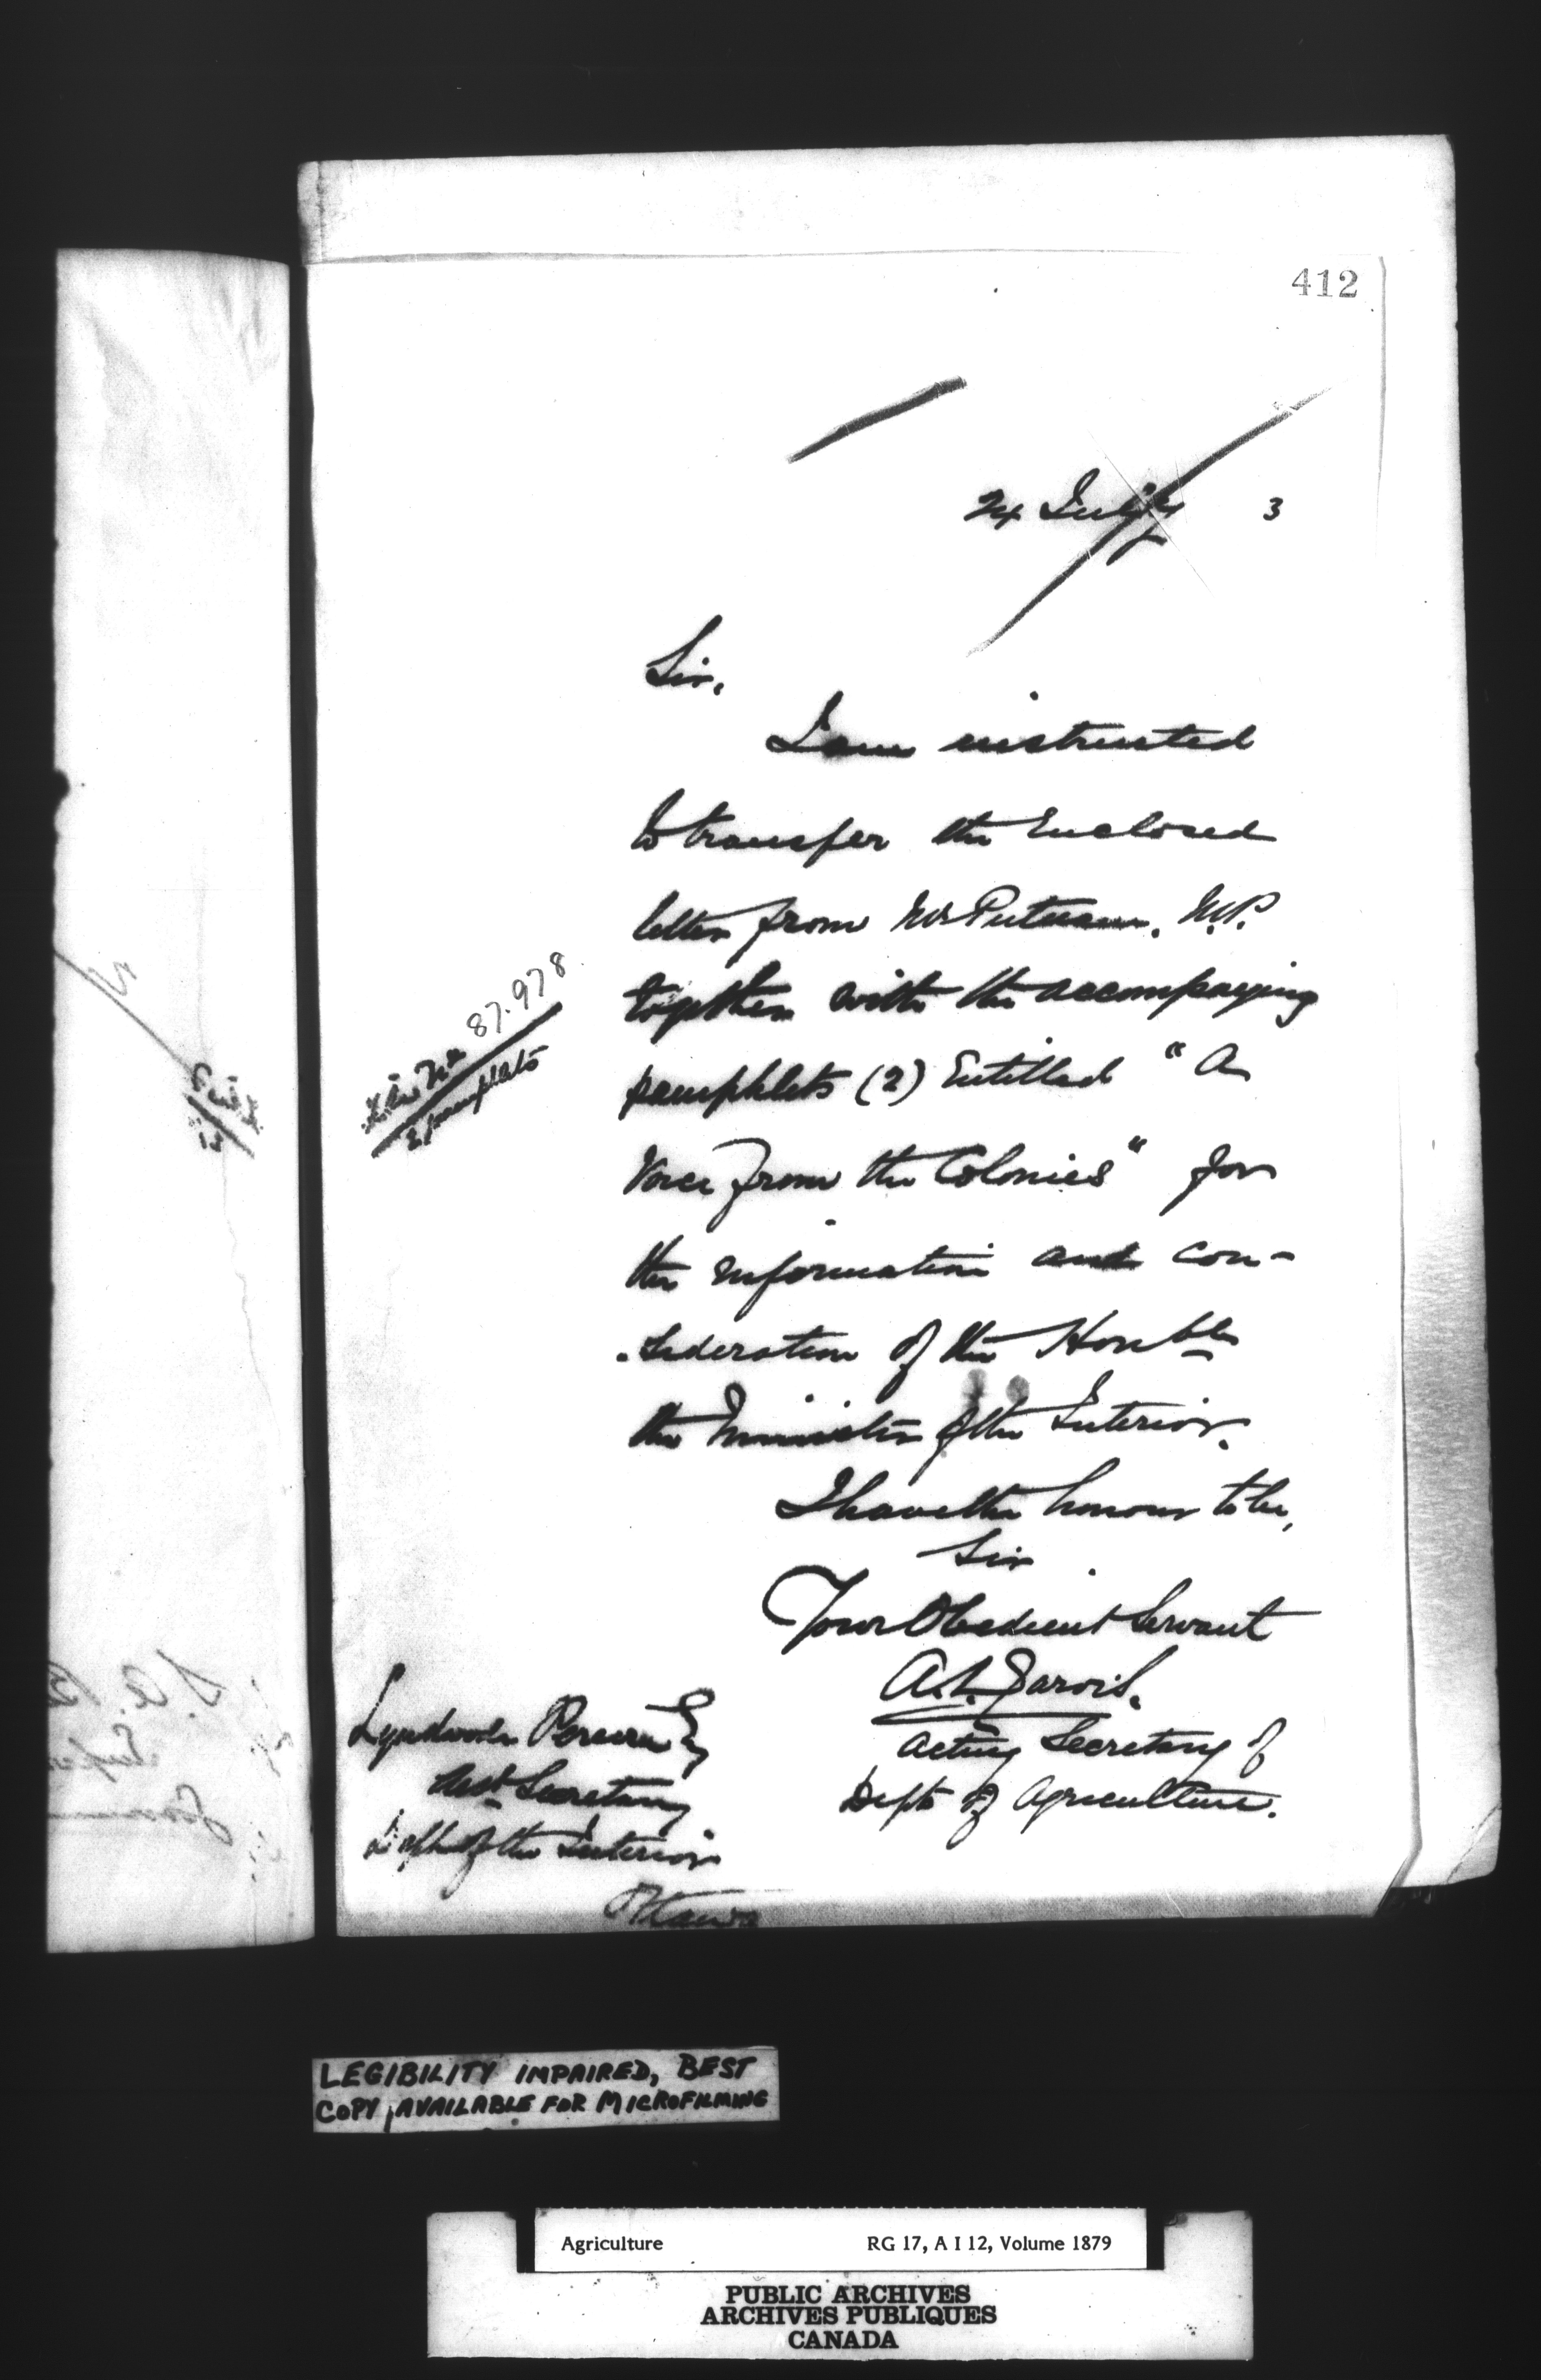 412
24 July 3
Sir,
I am instructed
to transfer the Enclosed
letter from Mr Putnam. M.P.
together with the accompaying
pamphlets (2) Entitled "A
Voice from the Colonies" for
the information and con-
sideration of the Honble
the Minister of the Interior.
I have the honour to be,
Sir
Your Obedient Servant
A.L. Jarvis.
Acting Secretary of
Dept of Agriculture.
87.978
2 pamphlets
Lyndwode Pereira Esq
Asst Secretary
Dept of the Interior
Ottawa
LEGIBILITY IMPAIRED, BEST
COPY AVAILABLE FOR MICROFILMING
Agriculture RG 17, A I 12, Volume 1879
PUBLIC ARCHIVES
ARCHIVES PUBLIQUES
CANADA